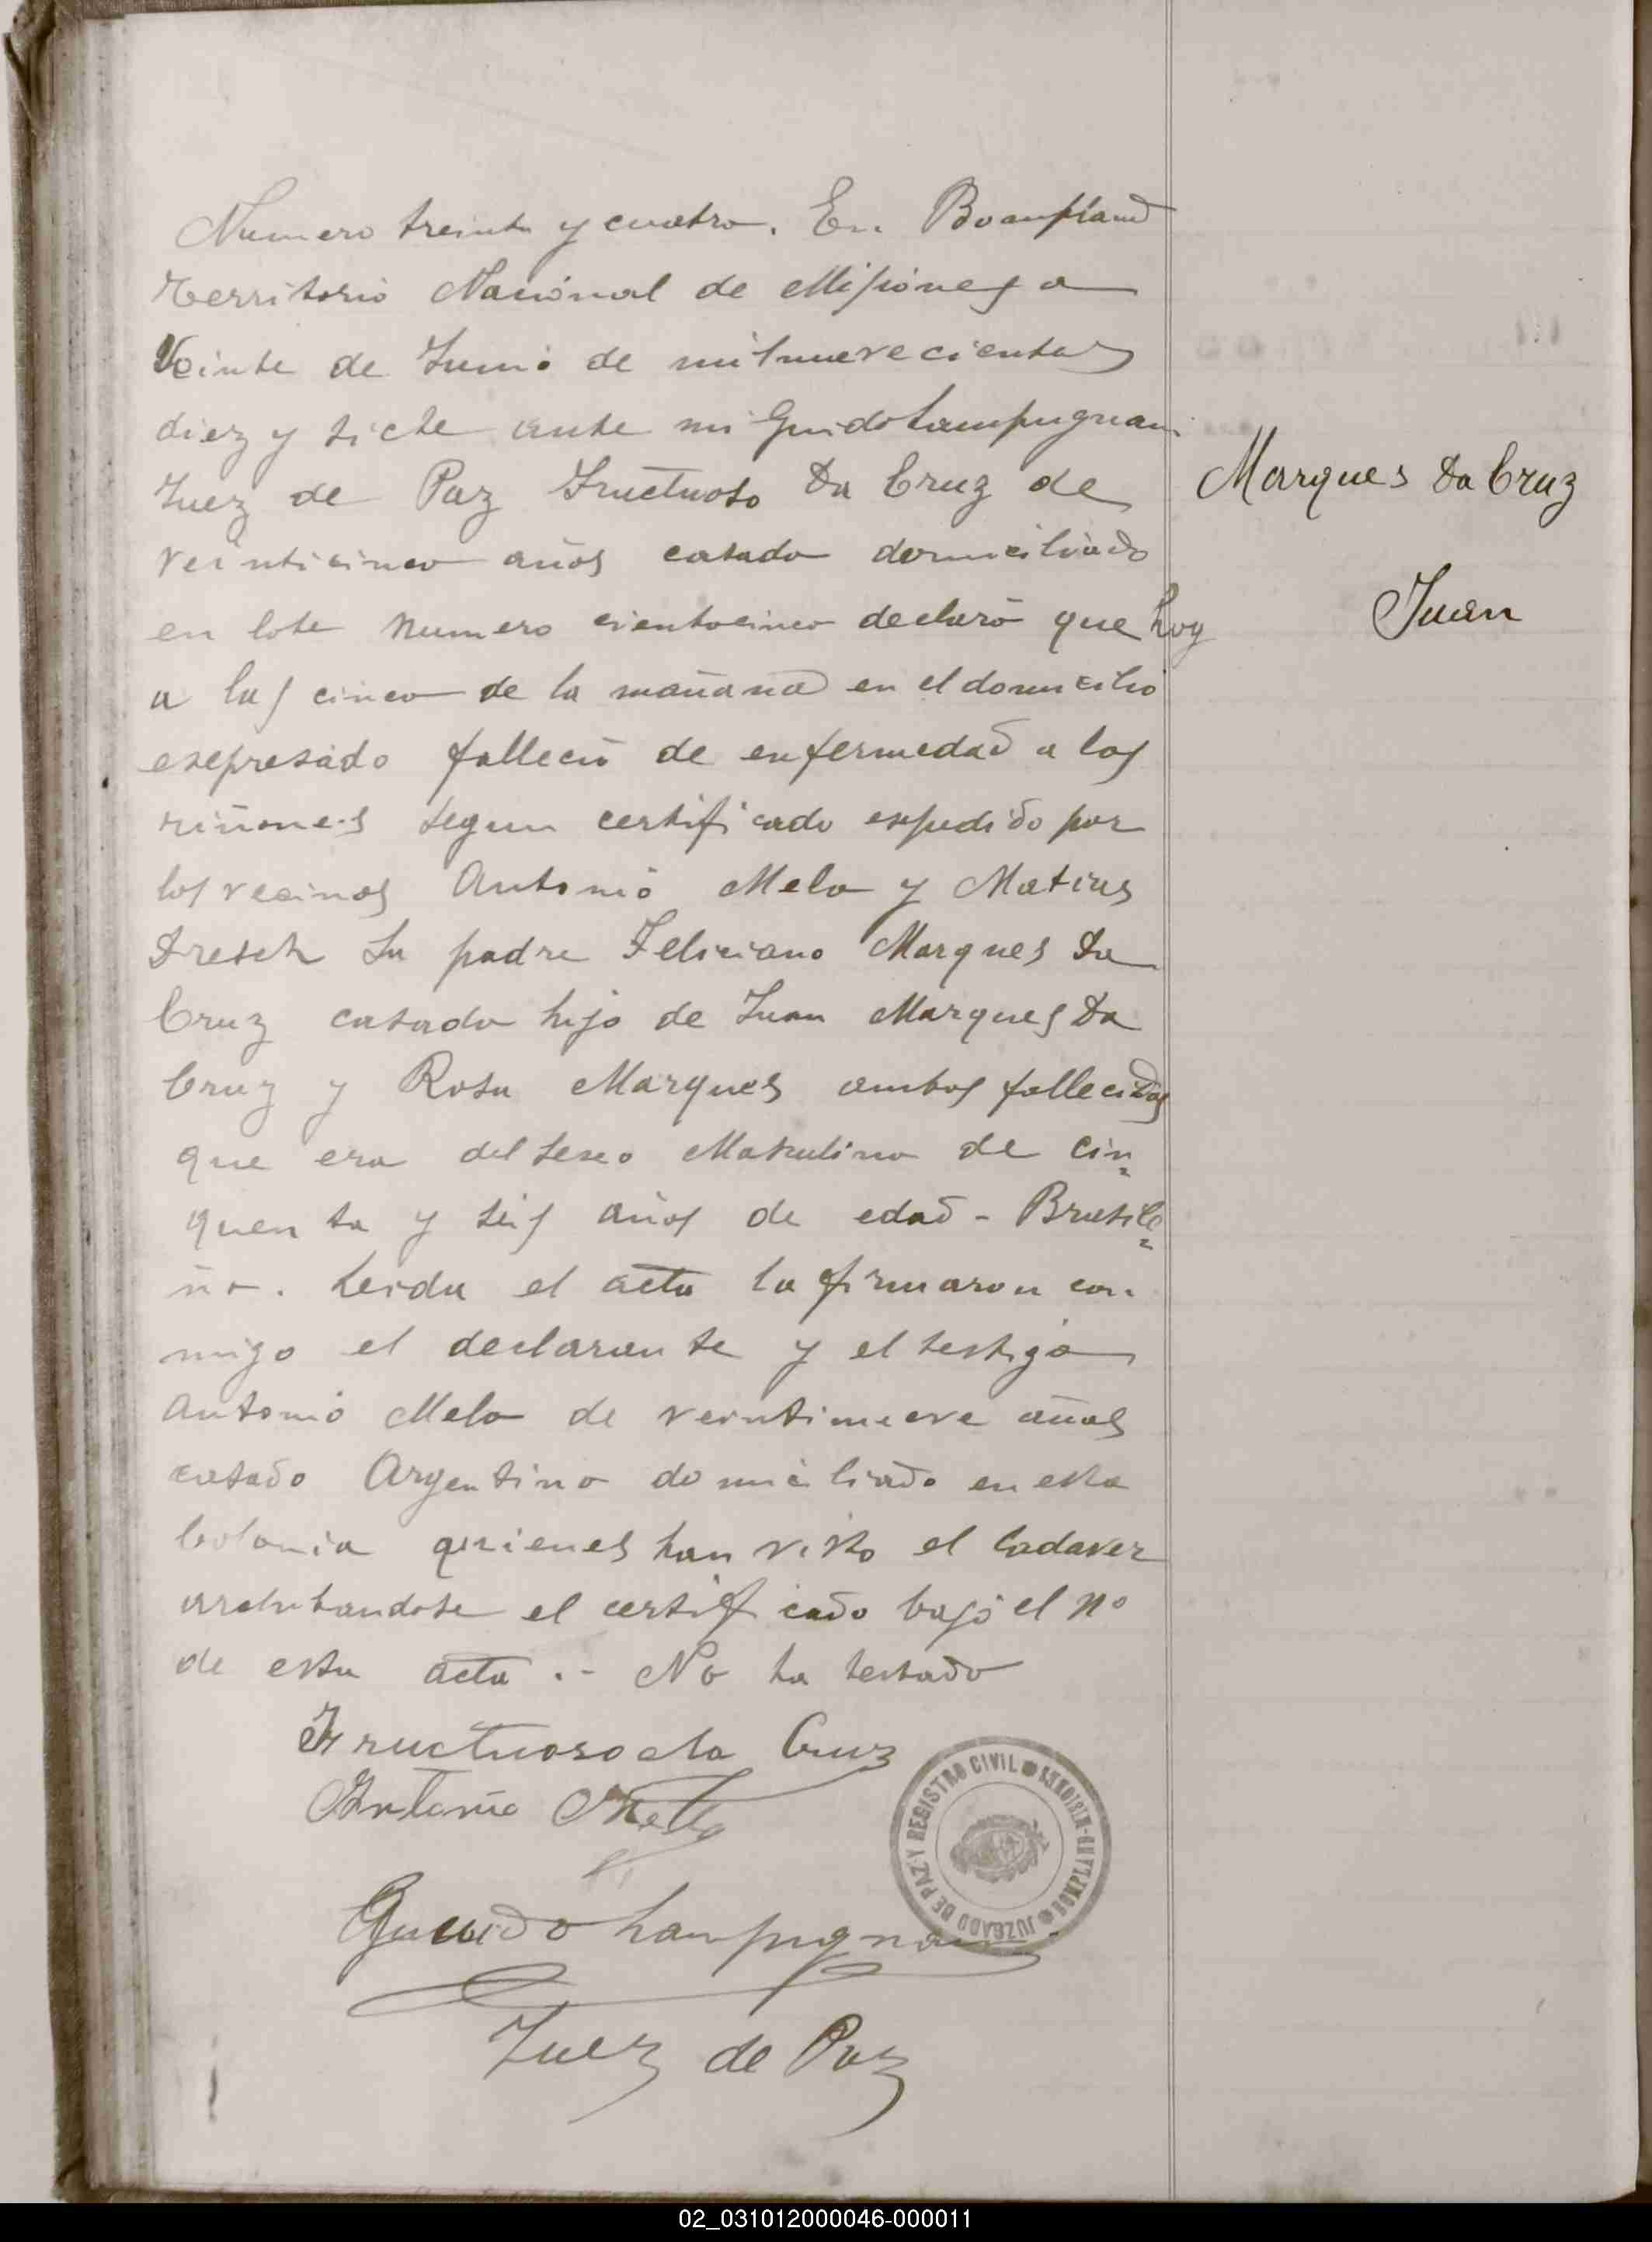 Numero treinta y cuatro. En Boanpland
Territorio Nacional de Misiones a
Veinte de Junio de milnuevecientos
diez y siete ante mi Guido Lampugnani
Juez de Paz Fructuoso Da Cruz de
veinticinco años casado domiciliado
en lote numero cientocinco declaró que hoy
Marques Da Cruz
Juan
a las cinco de la mañana en el domicilio
esepresado falleció de enfermedad a los
riñones segun certificado expedido por
los vecinos Antonio Melo y Matias
Dresch Su padre Feliciano Marques Da
Cruz casado hijo de Juan Marques Da
Cruz y Rosa Marques ambos fallecidos
que era del sexo Masculino de cin=
quenta y seis años de edad - Brasile=
ño. Leida el acta la firmaron con
migo el declarante y el testigo
Antonio Melo de veintinueve años
casado Argentino domiciliado en esta
Colonia quienes han visto el Cadaver
archibandose el certificado bajo el Nº
de esta acta .- No ha testado
Fructuoso da Cruz
Antonio Mello
JUZGADO DE PAZ Y REGISTRO CIVIL BONPLAND-MISIONES
Guido Lampugnani
Juez de Paz
02_031012000046-000011